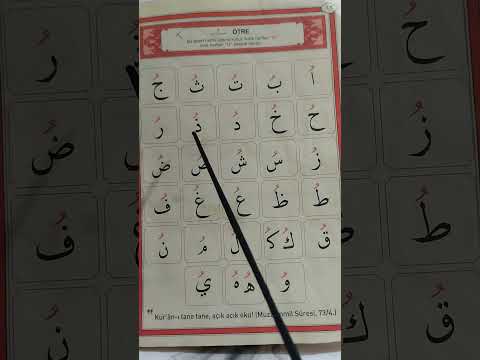 ÖTRE
اُ بُ تُ ثُ جُ
حُ خُ دُ ذُ رُ
زُ سُ شُ صُ ضُ
طُ ظُ عُ غُ فُ
قُ كُ كُ لُ مُ نُ
وُ هُ هُ يُ
Kur'ân-ı tane tane, açık açık oku! (Müzzemmil Sûresi, 73/4.)